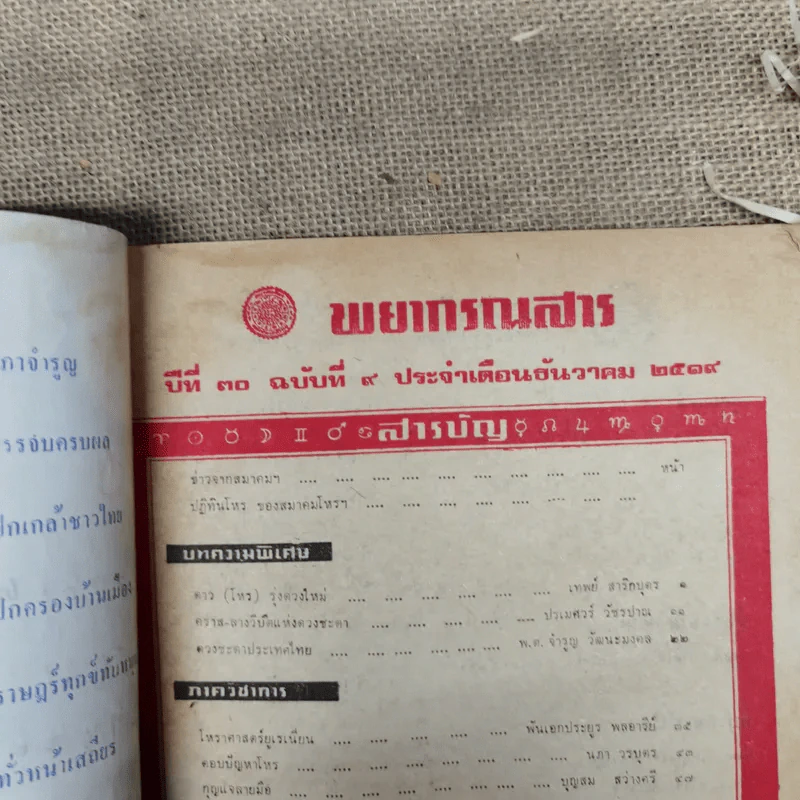 ภาจำรูญ
รรจบครบผล
ปกเกล้าชาวไทย
ปกครองบ้านเมือง
ราษฎร์ทุกข์
ทั่วหน้าเสถียร
พยากรณสาร
ปีที่ ๓๐ ฉบับที่ ๙ ประจำเดือนธันวาคม ๒๕๑๙
♈ ☉ ♉ ☽ ♊ ♂ ♋ สารบัญ ☿ ♌ ♃ ♍ ♀ ♏
ข่าวจากสมาคมฯ .... .... .... .... .... .... .... .... .... หน้า
ปฏิทินโหร ของสมาคมโหรฯ .... .... .... .... .... .... .... ....
บทความพิเศษ
ดาว (โหร) รุ่งดวงใหม่ .... .... .... .... .... .... เทพย์ สาริกบุตร ๑
คราส-ลางวิบัติแห่งดวงชะตา .... .... .... .... .... ปรเมศวร์ วัชรปาณ ๑๑
ดวงชะตาประเทศไทย .... .... .... .... .... พ.ต. จำรูญ วัฒนะมงคล ๒๒
ภาควิชาการ
โหราศาสตร์ยูเรเนียน .... .... .... .... .... พันเอกประยูร พลอารีย์ ๓๕
ตอบปัญหาโหร .... .... .... .... .... .... .... นภา วรบุตร ๔๓
กุญแจลายมือ .... .... .... .... .... .... .... บุญสม สว่างศรี ๔๗